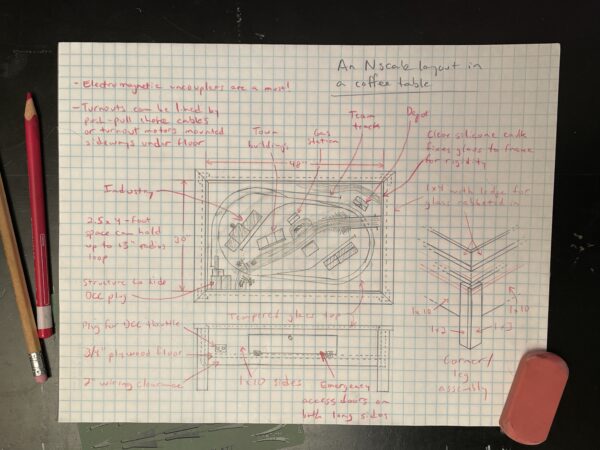 An N scale layout in
a coffee table
- Electromagnetic uncouplers are a must!
- Turnouts can be lined by
push-pull choke cables
or turnout motors mounted
sideways under floor
Town
buildings
Gas
station
Team
track
Depot
Clear silicone caulk
fixes glass to frame
for rigidity
48"
Industry
1x4 with ledge for
glass rabbeted in
2.5 x 4-foot
space can hold
up to 13" radius
loop
30"
Structure to hide
DCC plug
Tempered glass top
Plug for DCC throttle
3/8" plywood floor
2" wiring clearance
1x10 sides
Emergency
access doors on
both long sides
1x10
1x10
1x2
1x3
Corner/
leg
assembly